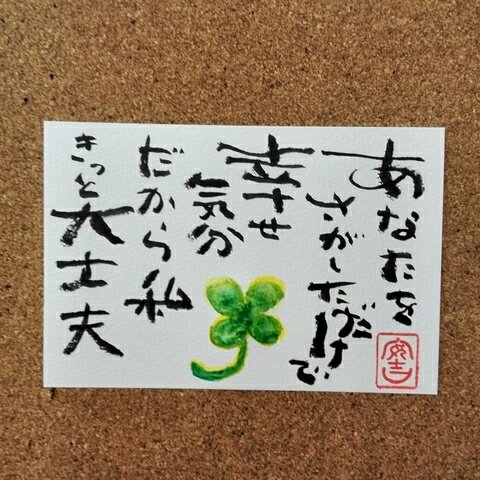 あなたを
さがしただけで
幸せ
気分
だから私
きっと大丈夫